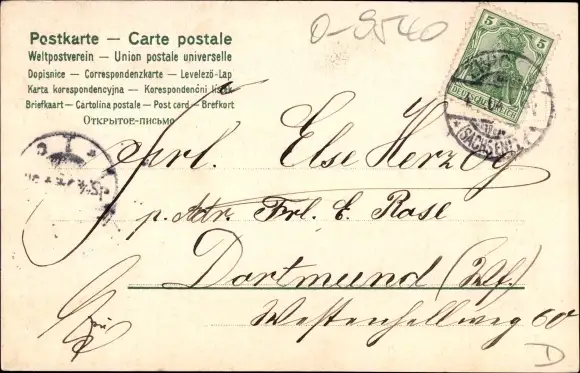 O-9540
Postkarte — Carte postale
Weltpostverein — Union postale universelle
Dopisnice — Correspondenzkarte — Levelező-Lap
Karta korespondencyjna — Korespondenční lístek
Briefkaart — Cartolina postale — Post card — Brefkort
Открытое-письмо
5 5
DEUTSCHES REICH
(SACHSEN)
Frl. Else Herzog
p. Adr. Frl. E. Rase
Dortmund (Wf.)
Westenhellweg 60
D